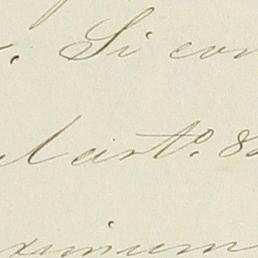 . Si con
Martº. 8
ximum